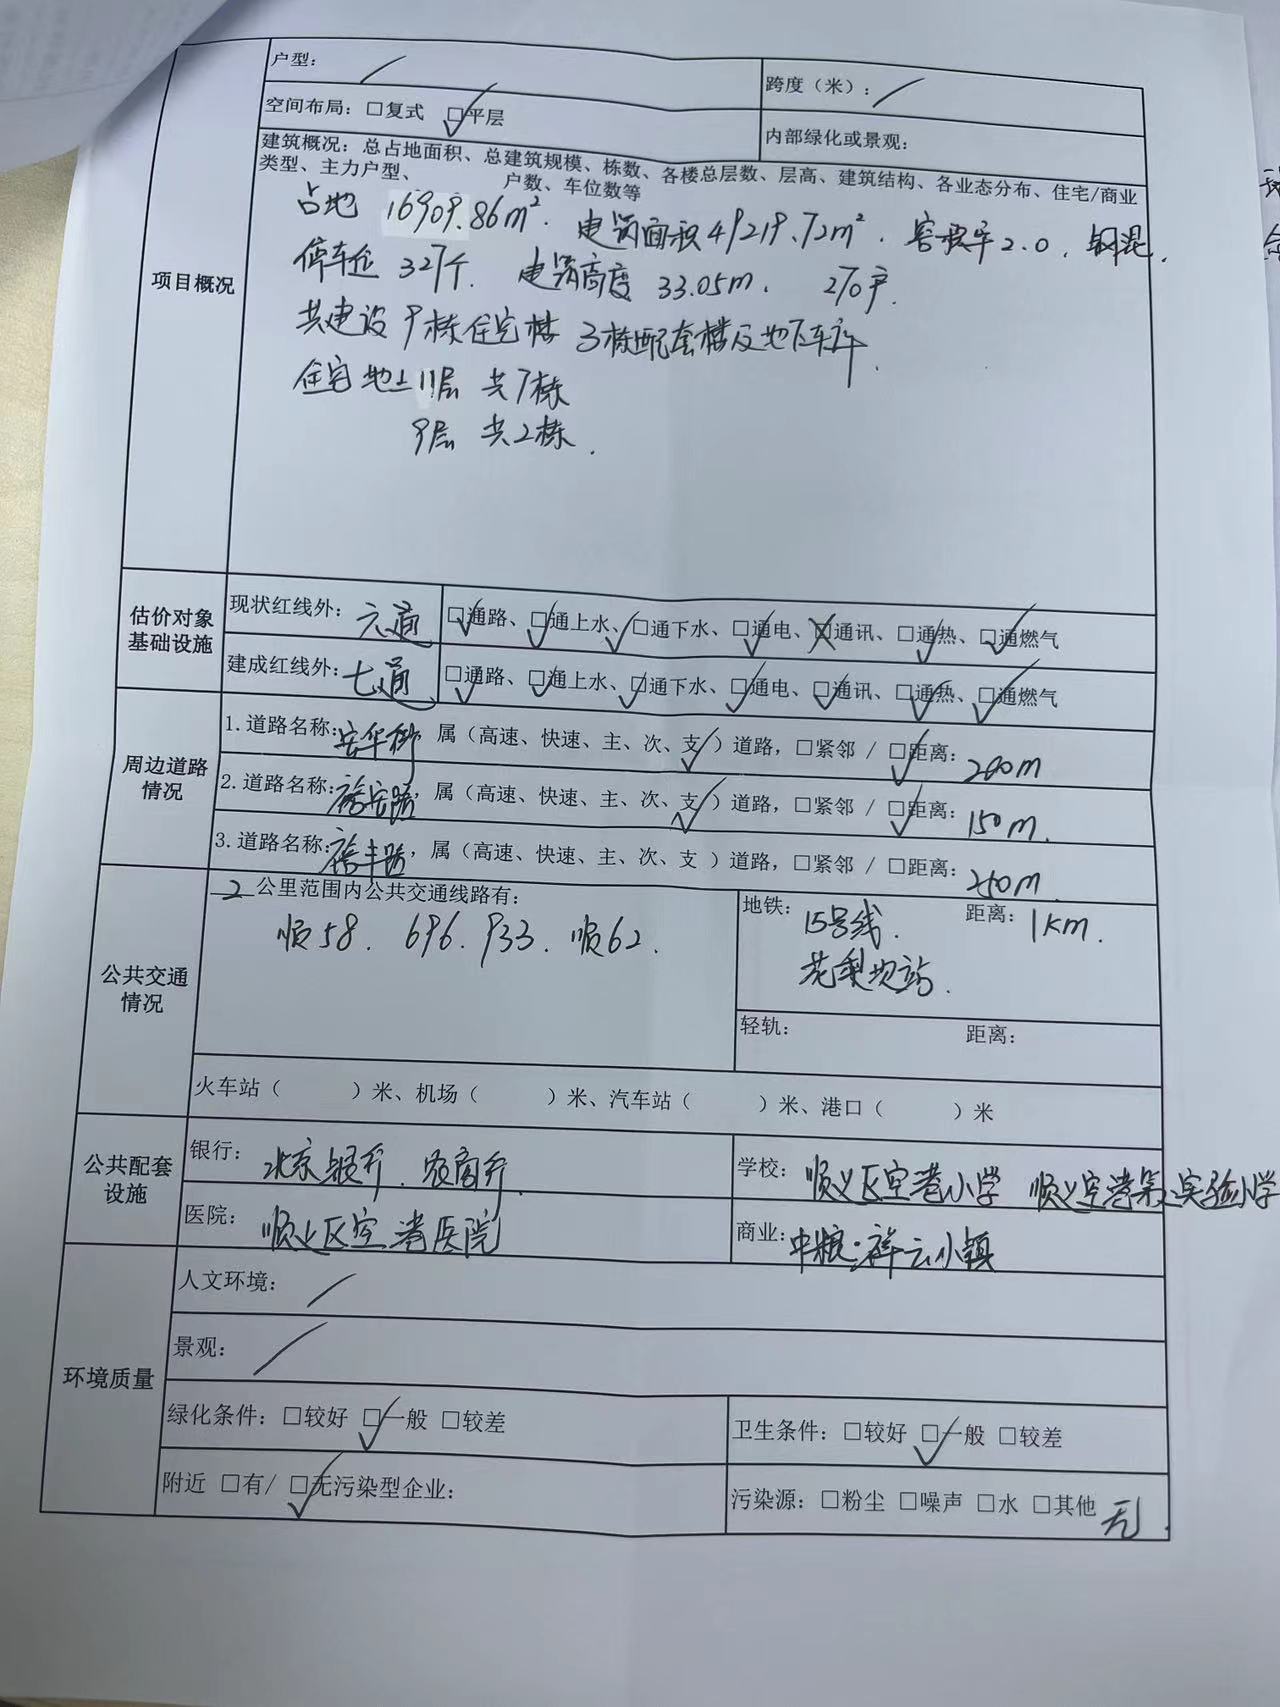 户型： /
跨度（米）： /
空间布局：□复式 ☑平层
内部绿化或景观：
项目概况
建筑概况：总占地面积、总建筑规模、栋数、各楼总层数、层高、建筑结构、各业态分布、住宅/商业
类型、主力户型、 户数、车位数等
占地 16909.86m². 建筑面积49219.72m². 容积率2.0. 钢混.
停车位 327个. 建筑高度 33.05m. 270户.
共建设9栋住宅楼 3栋配套楼及地下车库.
住宅地上11层 共7栋
9层 共2栋.
估价对象
基础设施
现状红线外：六通
☑通路、☑通上水、☑通下水、☑通电、☒通讯、☑通热、☑通燃气
建成红线外：七通
☑通路、☑通上水、☑通下水、☑通电、☑通讯、☑通热、☑通燃气
周边道路
情况
1.道路名称：安华街 属（高速、快速、主、次、支✓）道路，□紧邻 / ☑距离：200m
2.道路名称：裕安路，属（高速、快速、主、次、支✓）道路，□紧邻 / ☑距离：150m.
3.道路名称：裕丰路，属（高速、快速、主、次、支 ）道路，□紧邻 / □距离：250m
公共交通
情况
2 公里范围内公共交通线路有：
顺58. 696. 933. 顺62.
地铁：15号线. 距离：1km.
花梨坎站.
轻轨： 距离：
火车站（ ）米、机场（ ）米、汽车站（ ）米、港口（ ）米
公共配套
设施
银行：北京银行. 农商行
学校：顺义区空港小学 顺义空港第二实验小学
医院：顺义区空港医院
商业：中粮·祥云小镇
环境质量
人文环境： /
景观： /
绿化条件：□较好 ☑一般 □较差
卫生条件：□较好 ☑一般 □较差
附近 □有/ ☑无污染型企业：
污染源：□粉尘 □噪声 □水 □其他 无.